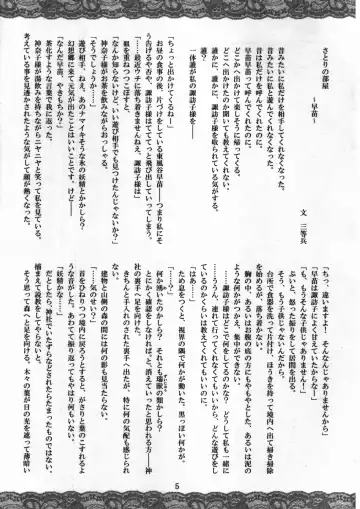 さとりの部屋
～早苗～
文　三等兵
昔みたいに私だけを相手してくれなくなった。
昔みたいに私と遊んでくれなくなった。
昔は私だけを呼んでくれたのに、
早苗早苗って呼んでくれたのに、
どこかへ出かけて楽しそうに帰ってくる。
どこかに出かけたのか聞いても教えてくれない。
誰かに、誰かに、諏訪子様を取られている気がする。
誰？
一体誰が諏訪子様を――
「ちょっと出かけてくるねー」
お昼の食事の後、片づけをしている東風谷早苗――つまり私にそ
う告げるや否や、諏訪子様はててててっと飛び出していってしまう。
「……最近ウチに落ち着きませんねえ、諏訪子様は」
手を重ねのでつこぼすと、
「なんか知らないけど、いい遊び相手でも見つけたんじゃないか？」
神奈子様がお茶を飲みながらおっしゃる。
「そうでしょうか……」
遊び相手……。あのナマイキそうな氷の妖精とかかしら？
幻想郷に来て元気になったことはいいことです。けど――
「なんだ早苗、やきもちか？」
神奈子様が湯飲みを持ちながらニヤニヤと笑って私を見ている。
考えている事を見透かされたような気がして顔が熱くなった。
「ちっ、違いますよ！　そんなんじゃありませんから」
「早苗は諏訪子によく甘えていたからなー」
「も、もうそんな子供じゃありません！」
ぷいと、怒った振りをして台所を出る。
そう、もう子供じゃないんだから。
台所で食器を洗って片付け、ほうきを持って境内へ出て掃き掃除
を始めるが、落ち着かない。
胸の中、あるいはお腹の底の方にもやもやとした、あるいは泥の
ような何かがうごめいて、集中ができない。
……諏訪子様はどこへ行っているのかな？　どうして私も一緒に
……ううん、連れて行ってくれなくてもいいから、どんな遊びをし
ているのかくらいは教えてくれてもいいのに。
「はあ……」
ため息をつくと、視界の隅で何かが動いた。黒っぽい何かが。
何か沸いたのかしら？　それとも瑞獣の類かしら？
とにかく確認をしなければと、消えていったと思われる方――神
社の裏手へ足を向けた。
きちんと手入れのされた裏手へ出たが、特に何の気配も感じられ
ず、建物と山側の森の間には何の影も見当たらない。
「……気のせい？」
首をひねりつつ境内に戻ろうとすると、がさりと葉のこすれるよ
うな音がした。あわてて振り返ってもやはり何もいない。
「妖精かな……」
だとしたら、神社でいたずらなどされたらたまったものではない。
捕まえて説教をしてやらないと。
そう思って森へと足を向ける。木々の葉が日の光を遮って薄暗い
5